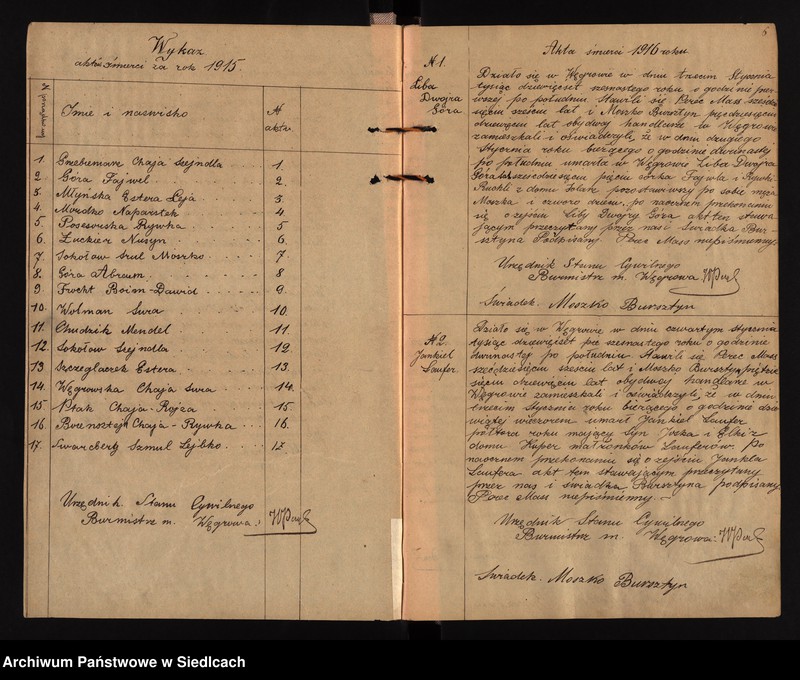 Wykaz
aktów śmierci za rok 1915.
Imie i nazwisko
N
akta.
1. Chaja Szejndla 1.
2. Góra Fajwel 2.
3. Młyńska Estera Łeja 3
4. Naparstek 4.
5. Rywka 5
6. Zucker Nusyn 6.
7. Sokołow Srul Moszko 7.
8. Góra Abram 8
9. Frocht Boim-Dawid 9.
10. Wolman Sura 10.
11. Chudzik Mendel 11.
12. Sokołow Szejndla 12.
13 Estera 13.
14. Węgrowska Chaja Sura 14.
15 Ptak Chaja-Rojza 15
16. Chaja-Rywka 16.
17. Szmul Lejbko 17
Urzędnik Stanu Cywilnego
Burmistrz m. Węgrowa:
Akta śmierci 1916 roku
N 1.
Liba
Dwojra
Góra
Działo się w Węgrowie w dniu trzecim Stycznia
tysiąc dziewięset szesnastego roku o godzinie pier-
wszej po południu. Stawili się Perec Mass sześćdzie-
sięciu sześciu lat i Moszko Bursztyn pięćdziesięciu
dziewięciu lat obydwaj handlarze w Węgrowie
zamieszkali i oświadczyli, że w dniu drugiego
Stycznia roku bieżącego o godzinie
po południu umarła w Węgrowie Liba Dwojra
Góra lat sześćdziesięciu pięciu córka Fajwla i Rywki
Ruchli z domu pozostawiwszy po sobie męża
Moszka i czworo dzieci. po naocznem przekonaniu
się o zejściu Liby Dwojry Góra akt ten stawa-
jącym przeczytany przez nas i świadka Bur-
sztyna podpisany. Perec Mass niepiśmienny.
Urzędnik Stanu Cywilnego
Burmistrz m. Węgrowa
Świadek. Moszko Bursztyn
N 2.
Jankiel
Laufer.
Działo się w Węgrowie w dniu czwartym stycznia
tysiąc dziewięset szesnastego roku o godzinie
po południu. Stawili się Perec Mass
sześćdziesięciu sześciu lat i Moszko Bursztyn pięćdzie-
sięciu dziewięciu lat obydwaj handlarze w
Węgrowie zamieszkali i oświadczyli, że w dniu
trzecim Stycznia roku bieżącego o godzinie dzie-
wiątej wieczorem umarł Jankiel Laufer
półtora roku mający syn Joska i z
domu Kuper małżonków Lauferów. Po
naocznem przekonaniu się o zejściu Jankla
Laufera akt ten stawającym przeczytany
przez nas i świadka Bursztyna podpisany
Perec Mass niepiśmienny.
Urzędnik Stanu Cywilnego
Burmistrz m. Węgrowa:
Świadek. Moszko Bursztyn
Archiwum Państwowe w Siedlcach